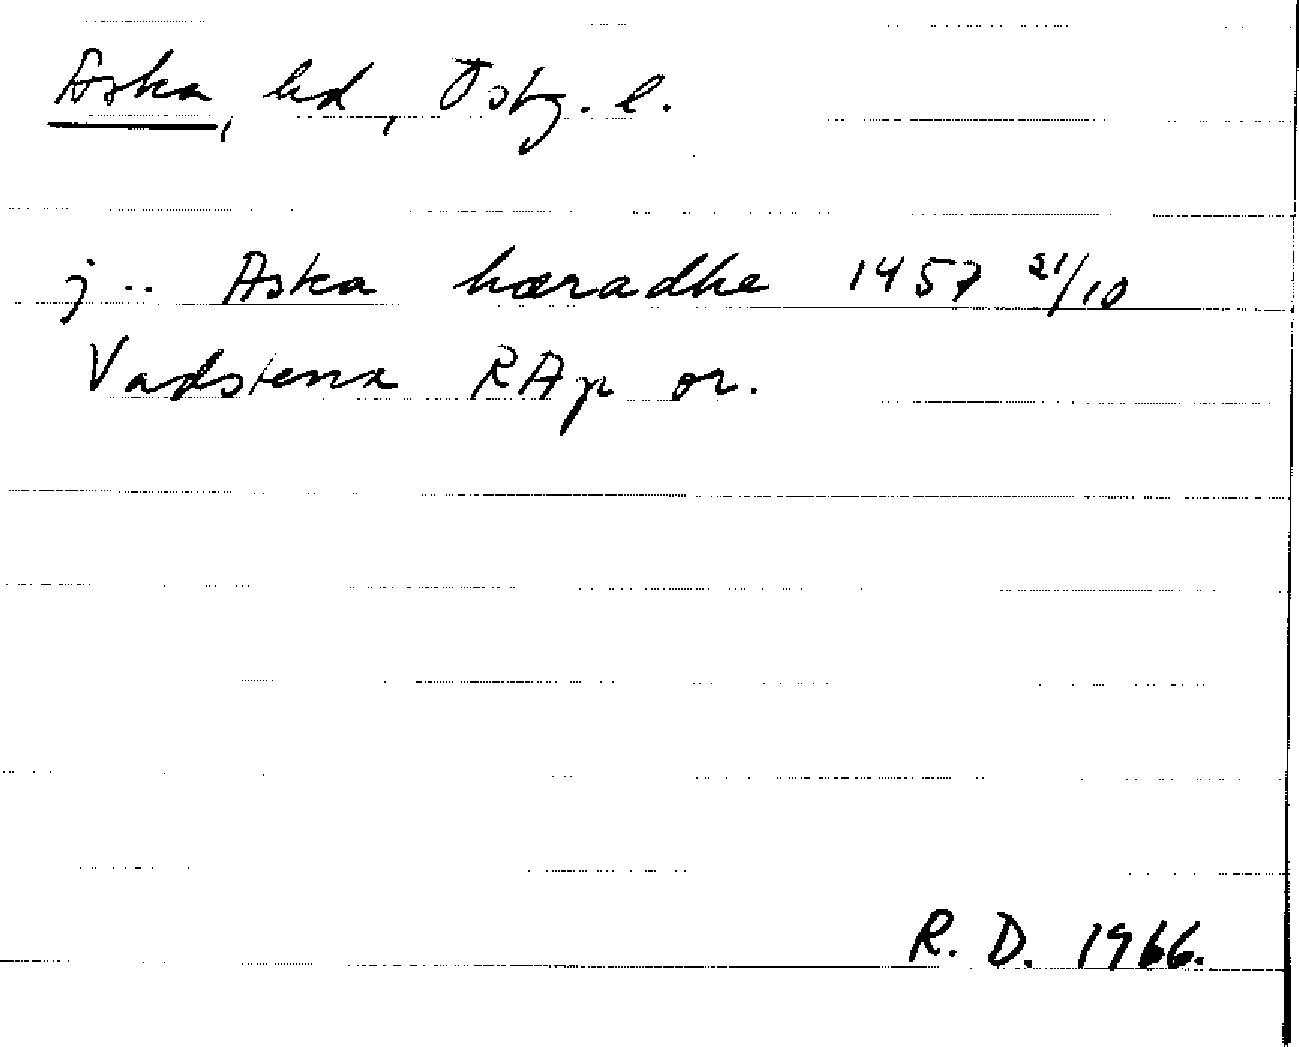 Aska, hd, Östg. l.
j .. Aska hæradhe 1457 21/10
Vadstena RAp or.
R. D. 1966.